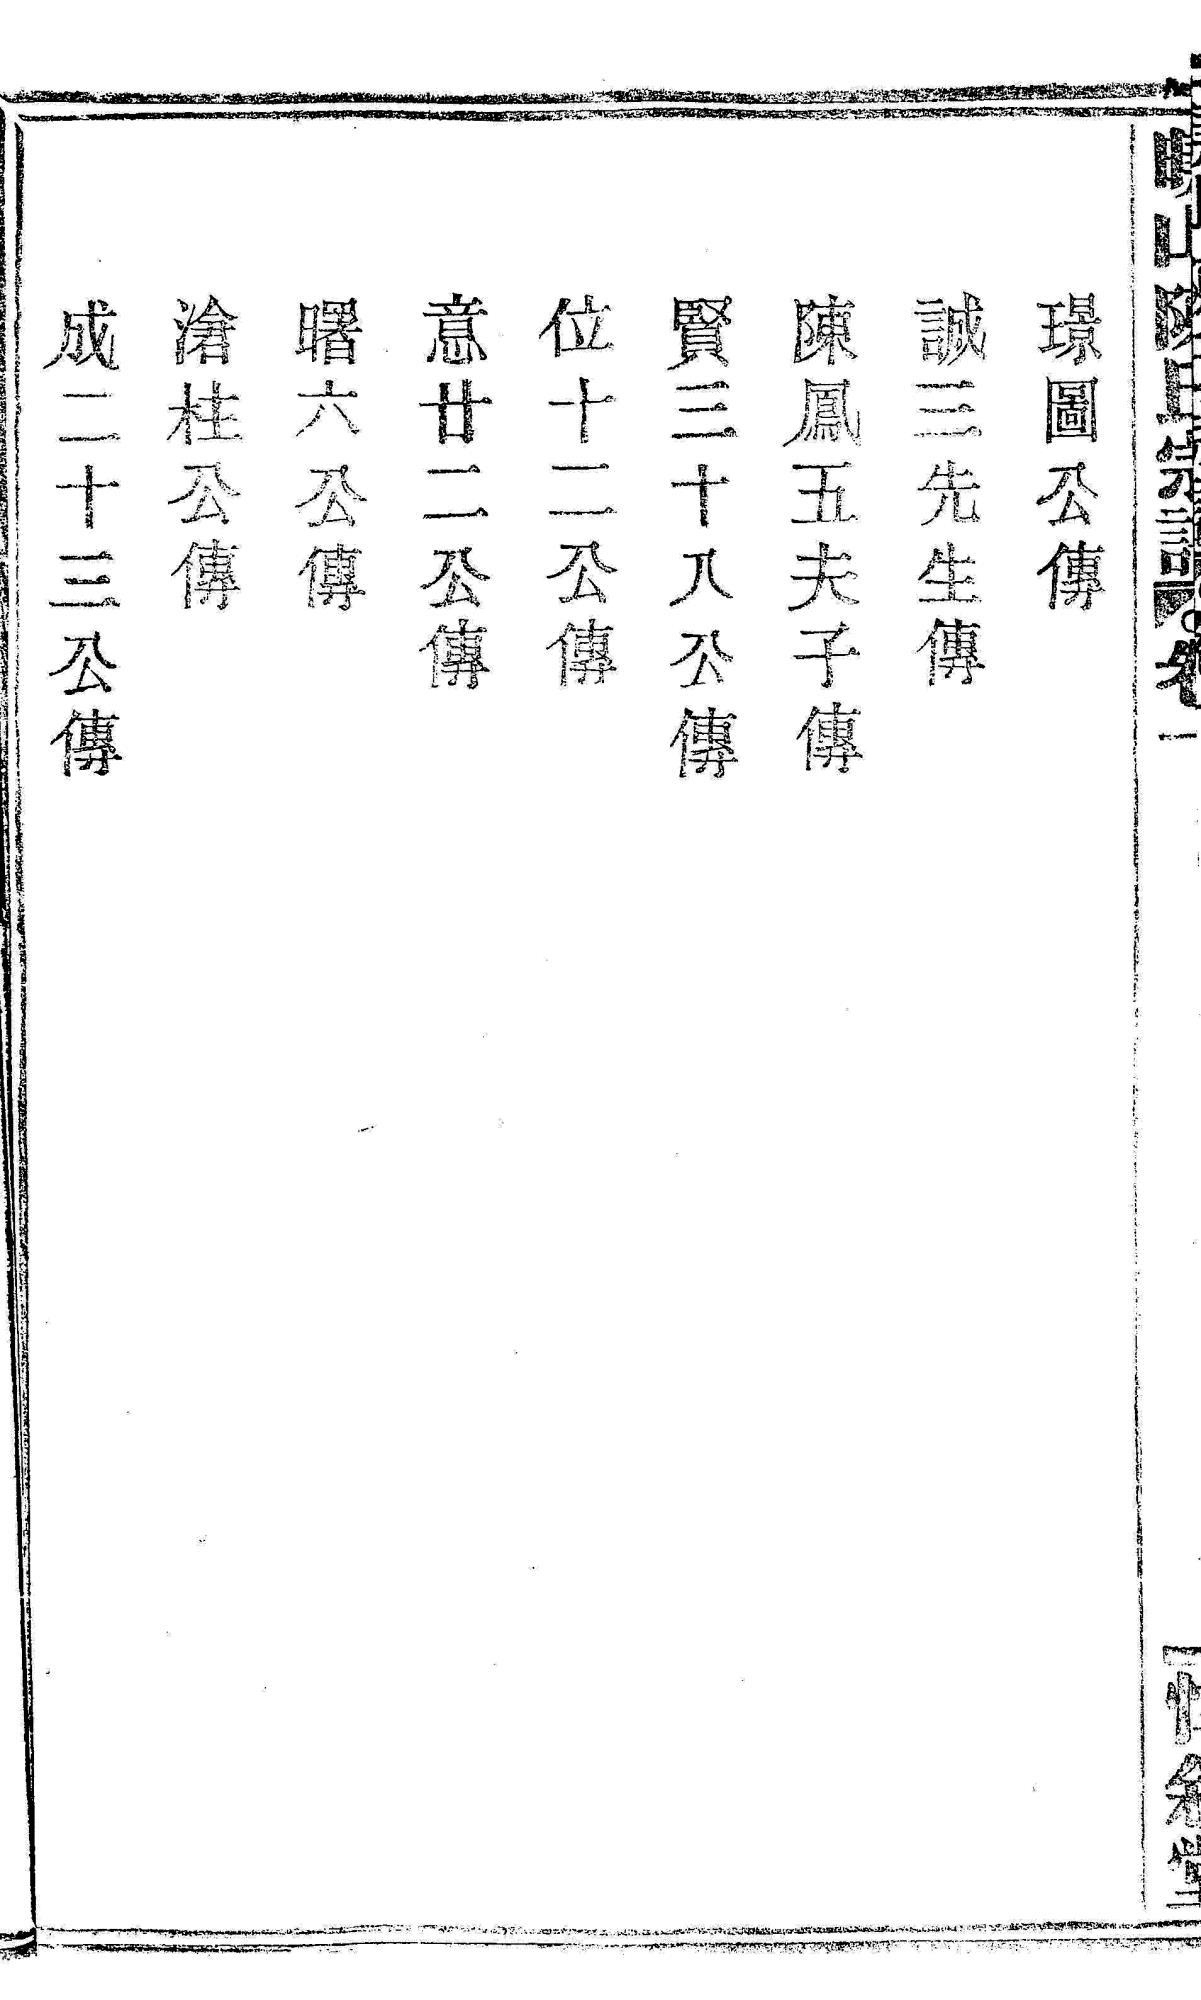 璟圖公傳
誠三先生傳
陳鳳五夫子傳
賢三十八公傳
位十二公傳
意廿二公傳
曙六公傳
滄柱公傳
成二十三公傳